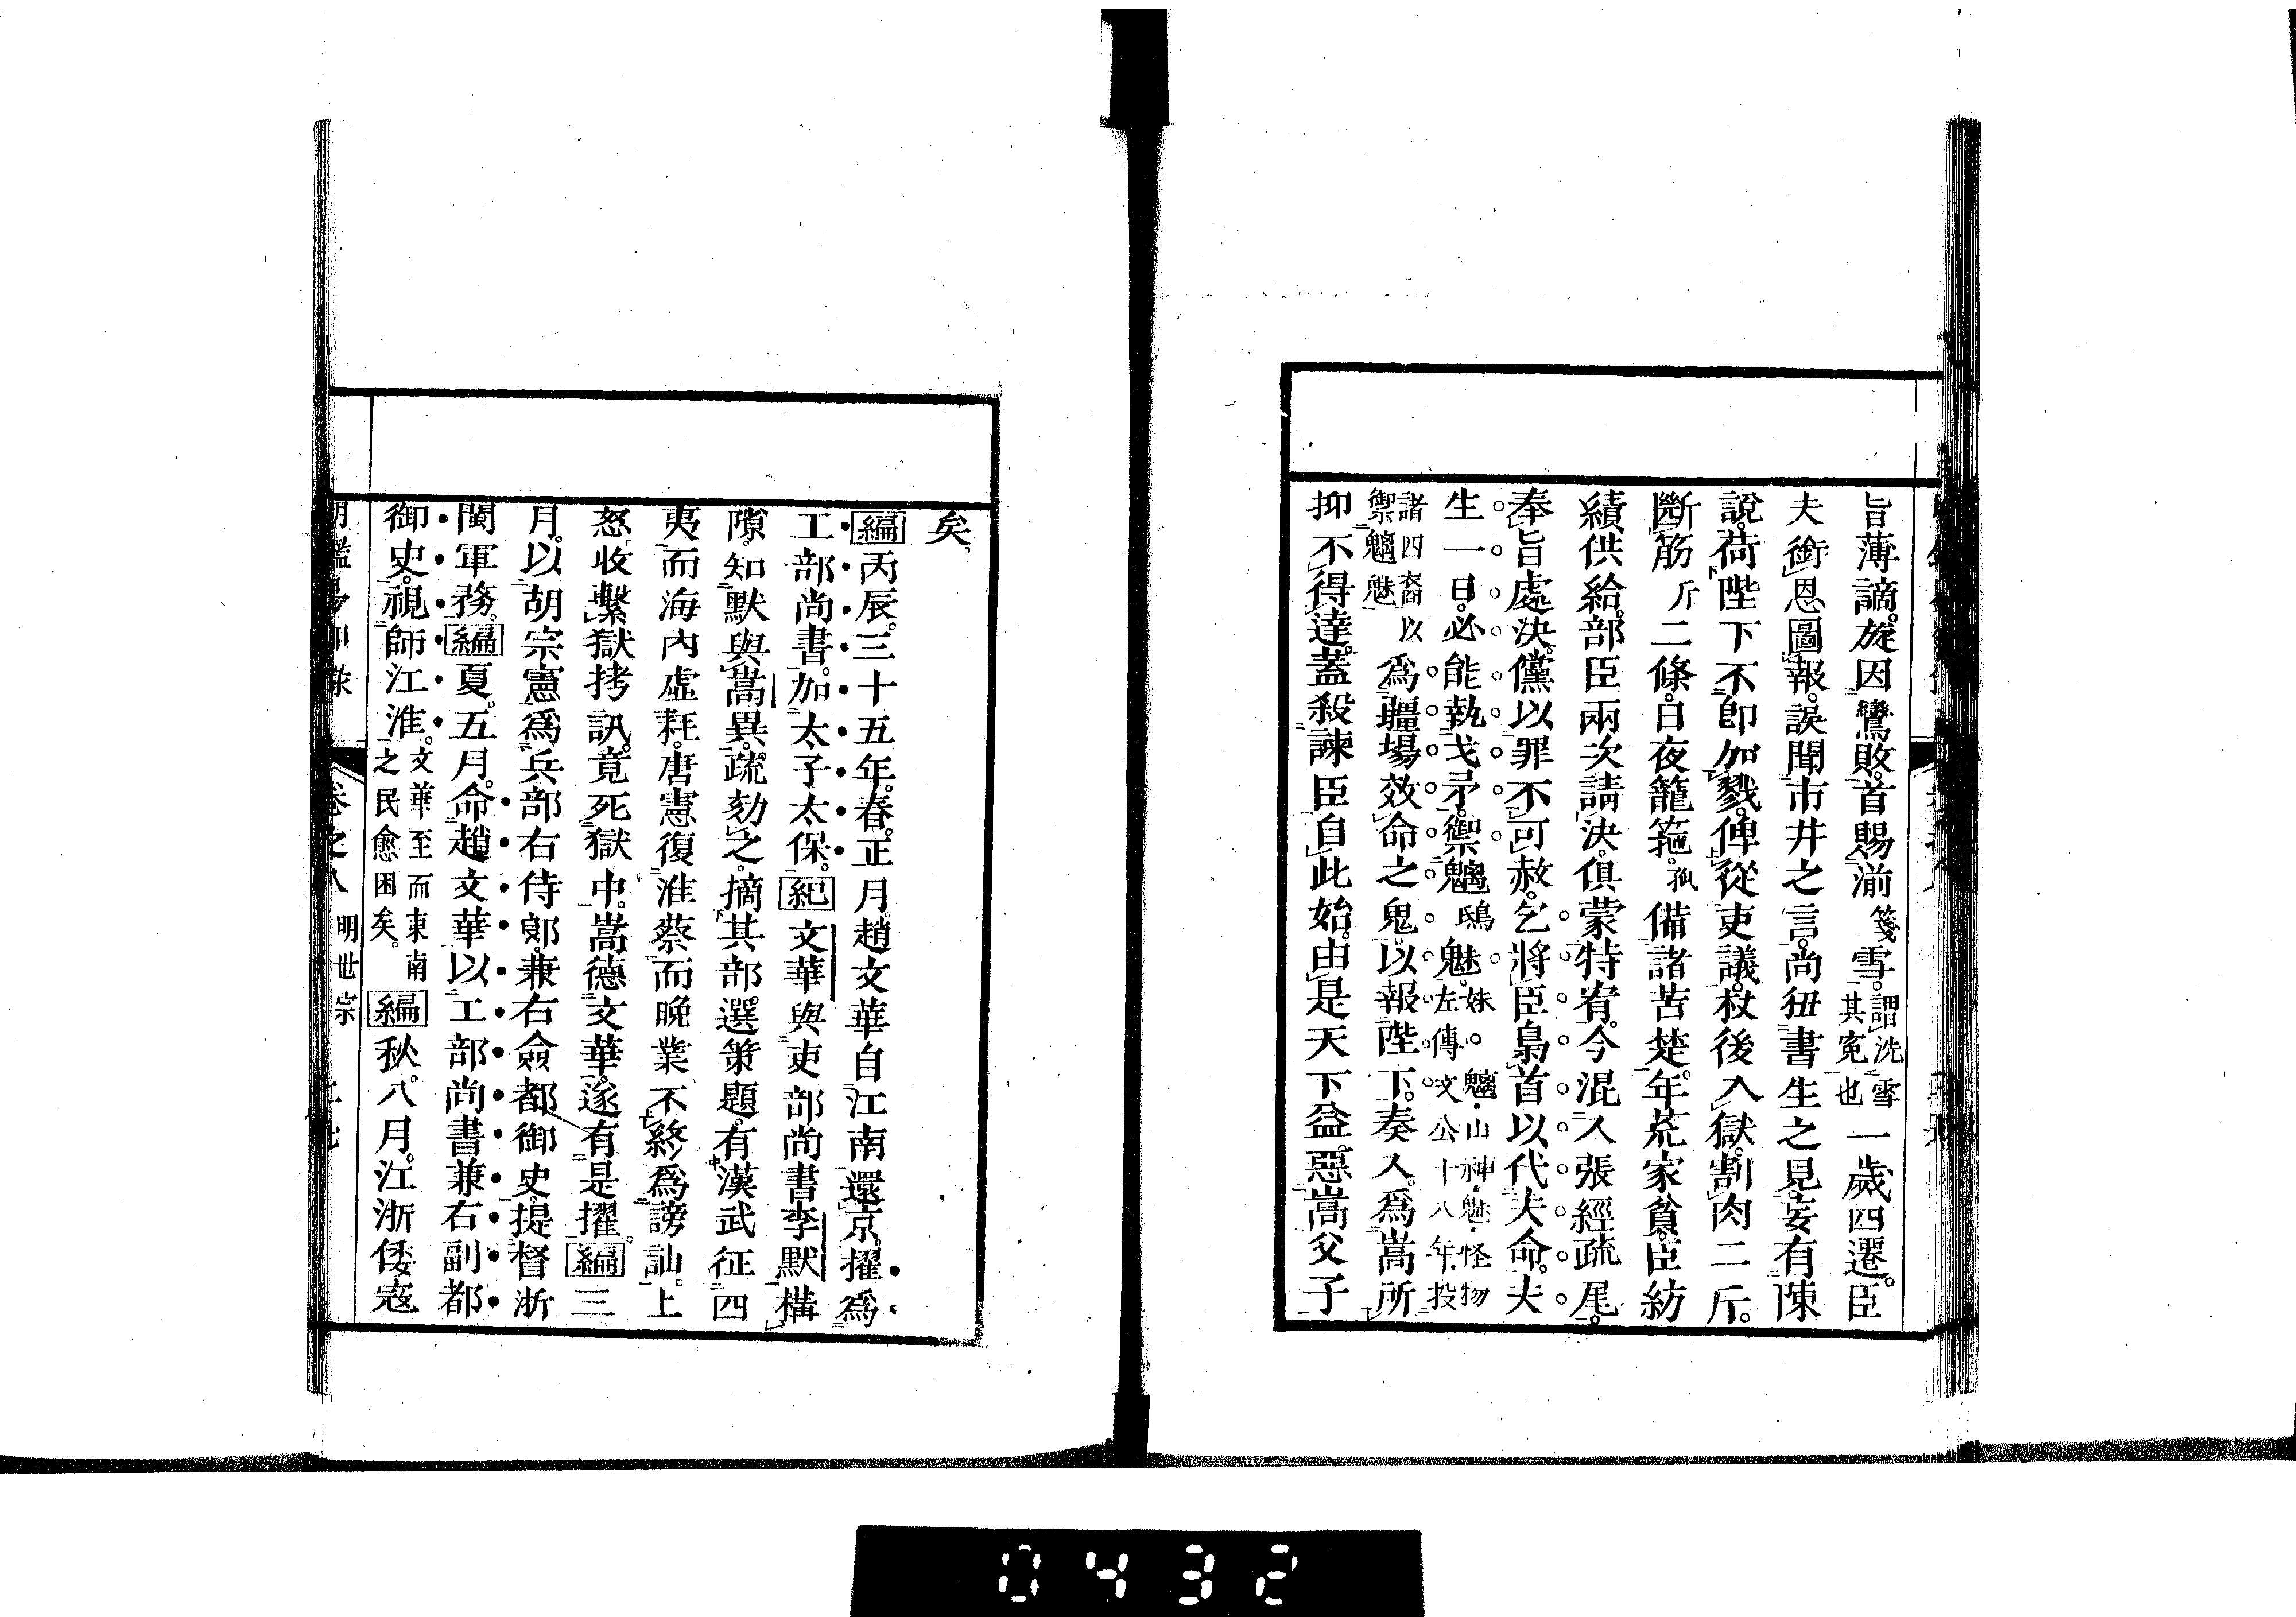 旨薄謫。旋因鸞敗。首賜湔箋雪。謂洗雪其冤也一歲四遷。臣
夫銜恩圖報。誤聞市井之言。尚狃書生之見。妄有陳
說。荷陛下不卽加戮。俾從吏議。杖後入獄。割肉二斤。
斷筋斤二條。日夜籠箍。孤備諸苦楚。年荒家貧。臣紡
績供給。部臣兩次請決。俱蒙特宥。今混入張經疏尾。
奉旨處決。儻以罪不可赦。乞將臣梟首以代夫命。夫
生一日。必能執戈矛。禦魑鴟魅妹。魑山神魅怪物左傳文公十八年投
諸四裔以禦魑魅爲疆場效命之鬼。以報陛下。奏入。爲嵩所
抑不得達。蓋殺諫臣自此始。由是天下益惡嵩父子
矣。
編丙辰。三十五年。春。正月趙文華自江南還京。擢爲
工部尚書。加太子太保。紀文華與吏部尚書李默構
隙。知默與嵩異。疏劾之。摘其部選策題。有漢武征四
夷。而海內虛耗。唐憲復淮蔡而晚業不終。爲謗訕。上
怒。收繫獄拷訊。竟死獄中。嵩德文華。遂有是擢。編三
月。以胡宗憲爲兵部右侍郞。兼右僉都御史。提督浙
閩軍務。編夏。五月。命趙文華以工部尚書兼右副都
御史。視師江淮。文華至而東南之民愈困矣。編秋。八月。江浙倭寇
卷之八 明世宗
0432